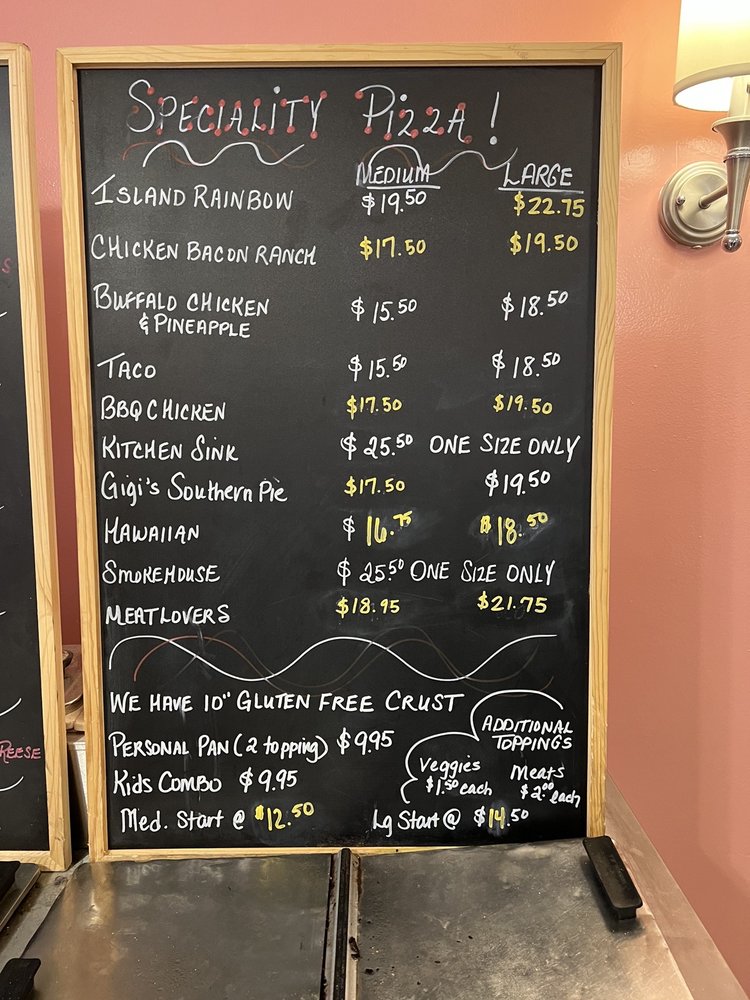 SPECIALITY PIZZA!
MEDIUM LARGE
ISLAND RAINBOW $19.50 $22.75
CHICKEN BACON RANCH $17.50 $19.50
BUFFALO CHICKEN
& PINEAPPLE $15.50 $18.50
TACO $15.50 $18.50
BBQ CHICKEN $17.50 $19.50
KITCHEN SINK $25.50 ONE SIZE ONLY
Gigi's Southern Pie $17.50 $19.50
HAWAIIAN $16.75 $18.50
SMOKEHOUSE $25.50 ONE SIZE ONLY
MEATLOVERS $18.95 $21.75
WE HAVE 10" GLUTEN FREE CRUST
PERSONAL PAN (2 topping) $9.95
Kids COMBO $9.95
Med. Start @ $12.50
Lg Start @ $14.50
ADDITIONAL
TOPPINGS
Veggies
$1.50 each
Meats
$2.00 each
REESE